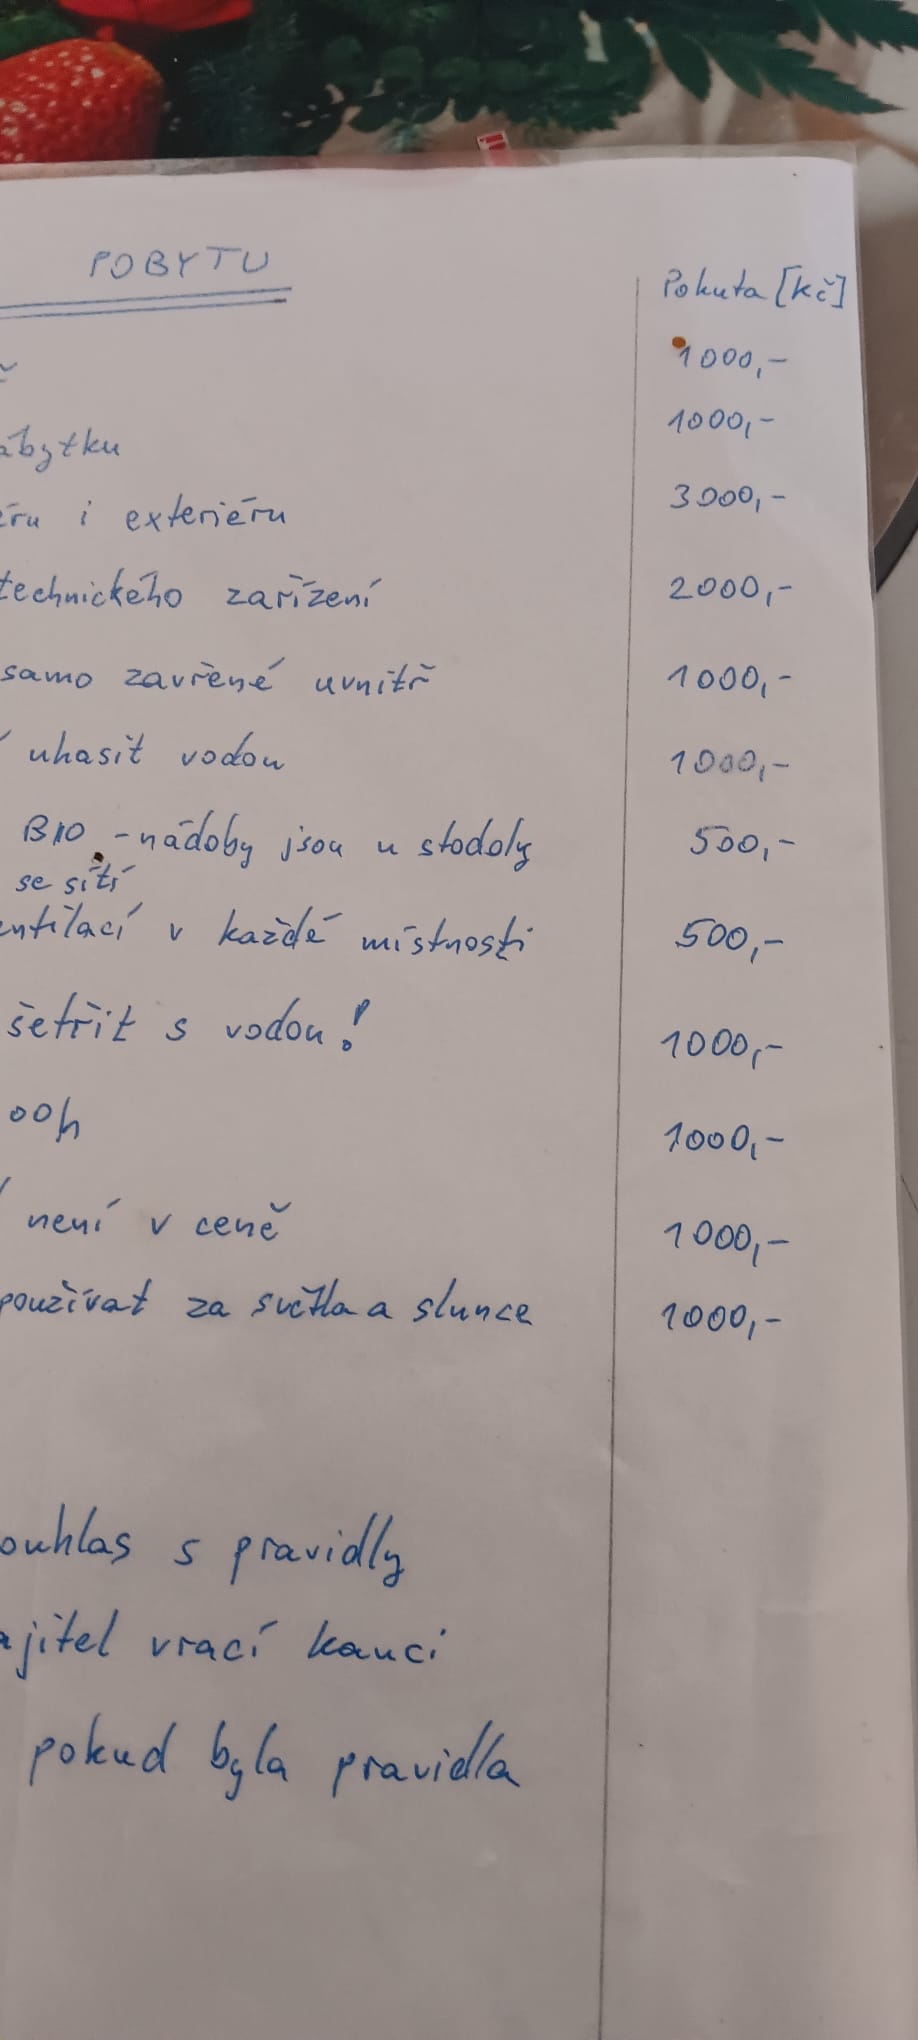 POBYTU
Pokuta [Kč]
1000,-
ábytku 1000,-
éru i exteriéru 3000,-
technického zařízení 2000,-
samo zavřené uvnitř 1000,-
uhasit vodou 1000,-
BIO - nádoby jsou u stodoly 500,-
se sítí
entilací v každé místnosti 500,-
šetřit s vodou! 1000,-
00h 1000,-
není v ceně 1000,-
používat za světla a slunce 1000,-
ouhlas s pravidly
ajitel vrací kauci
pokud byla pravidla